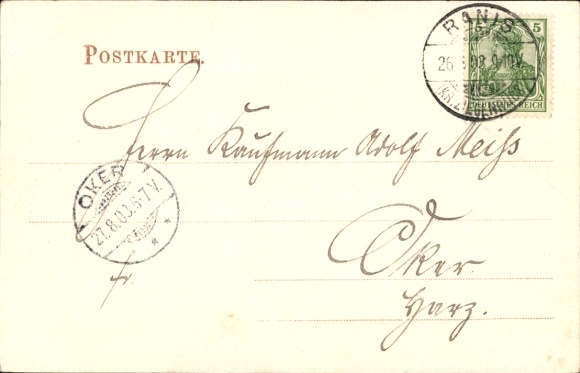 POSTKARTE.
RANIS
5 5
9-10V.
(KR. ZIEGENRÜCK)
DEUTSCHES REICH
Herrn Kaufmann Adolf Meiß
OKER
27.8.03.6-7V.
Oker
fr.
Harz.